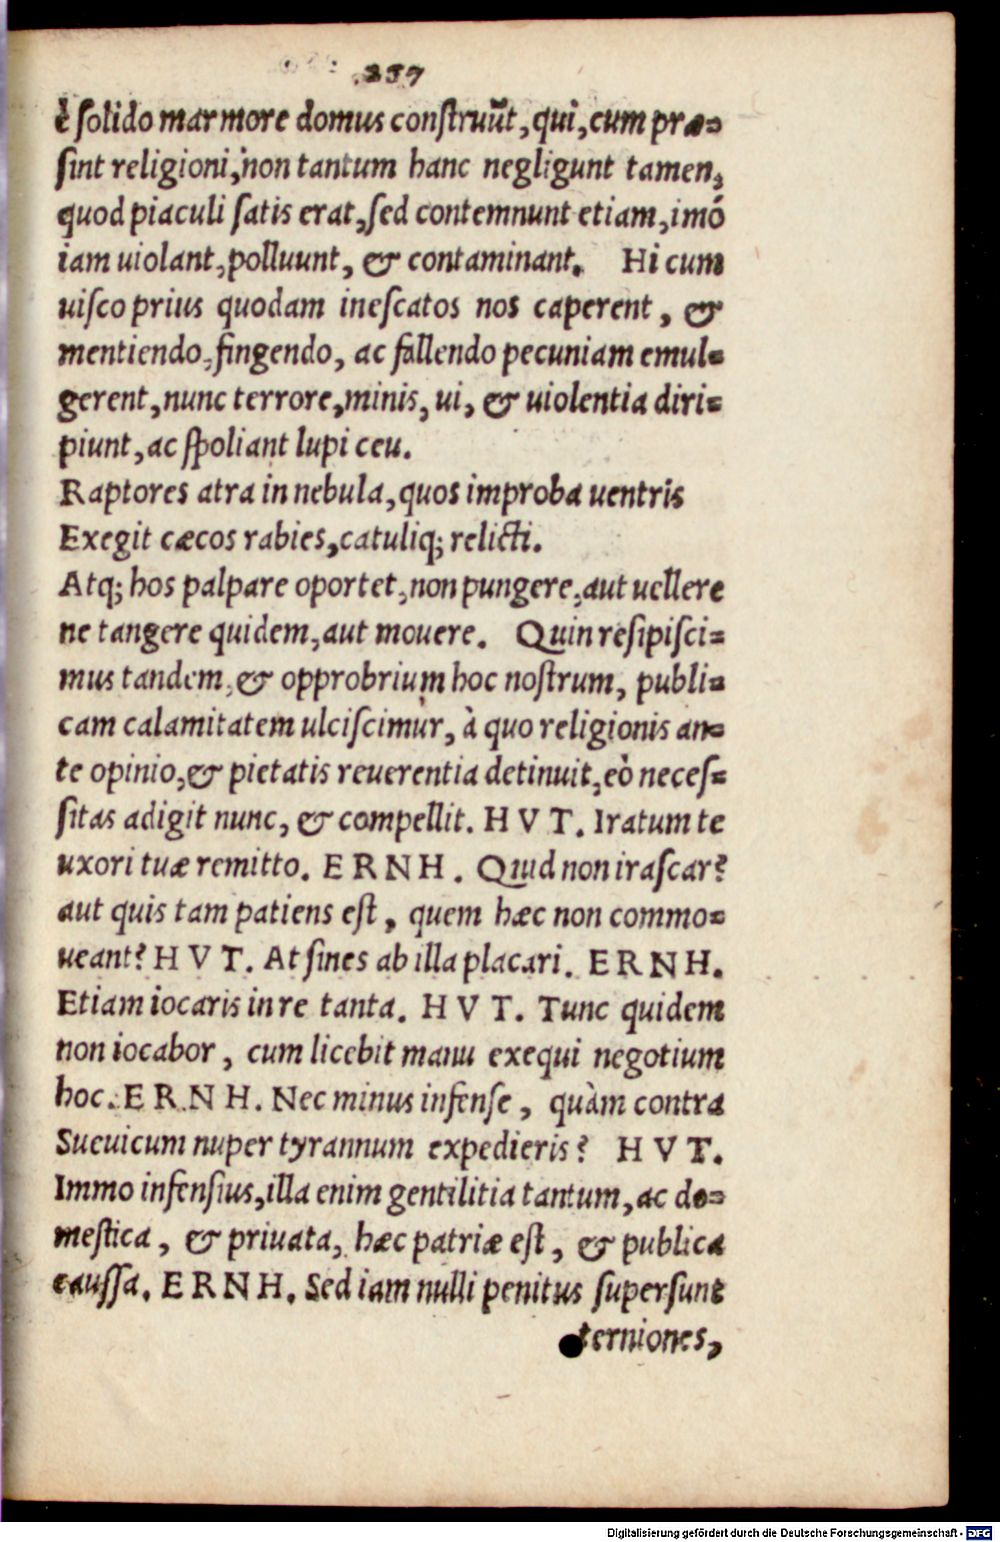 .257
è solido marmore domus construũt, qui, cum præ-
sint religioni, non tantum hanc negligunt tamen,
quod piaculi satis erat, sed contemnunt etiam, imò
iam uiolant, polluunt, & contaminant. Hi cum
uisco prius quodam inescatos nos caperent, &
mentiendo, fingendo, ac fallendo pecuniam emul-
gerent, nunc terrore, minis, ui, & uiolentia diri-
piunt, ac spoliant lupi ceu.
Raptores atra in nebula, quos improba uentris
Exegit cæcos rabies, catuliq; relicti.
Atq; hos palpare oportet, non pungere, aut uellere
ne tangere quidem, aut mouere. Quin resipisci-
mus tandem, & opprobrium hoc nostrum, publi-
cam calamitatem ulciscimur, à quo religionis an-
te opinio, & pietatis reuerentia detinuit, eò neces-
sitas adigit nunc, & compellit. H V T. Iratum te
uxori tuæ remitto. E R N H. Quid non irascar?
aut quis tam patiens est, quem hæc non commo-
ueant? H V T. At sines ab illa placari. E R N H.
Etiam iocaris in re tanta. H V T. Tunc quidem
non iocabor, cum licebit manu exequi negotium
hoc. E R N H. Nec minus infense, quàm contra
Sueuicum nuper tyrannum expedieris? H V T.
Immo infensius, illa enim gentilitia tantum, ac do-
mestica, & priuata, hæc patriæ est, & publica
caussa. E R N H. Sed iam nulli penitus supersunt
terniones,
Digitalisierung gefördert durch die Deutsche Forschungsgemeinschaft - DFG